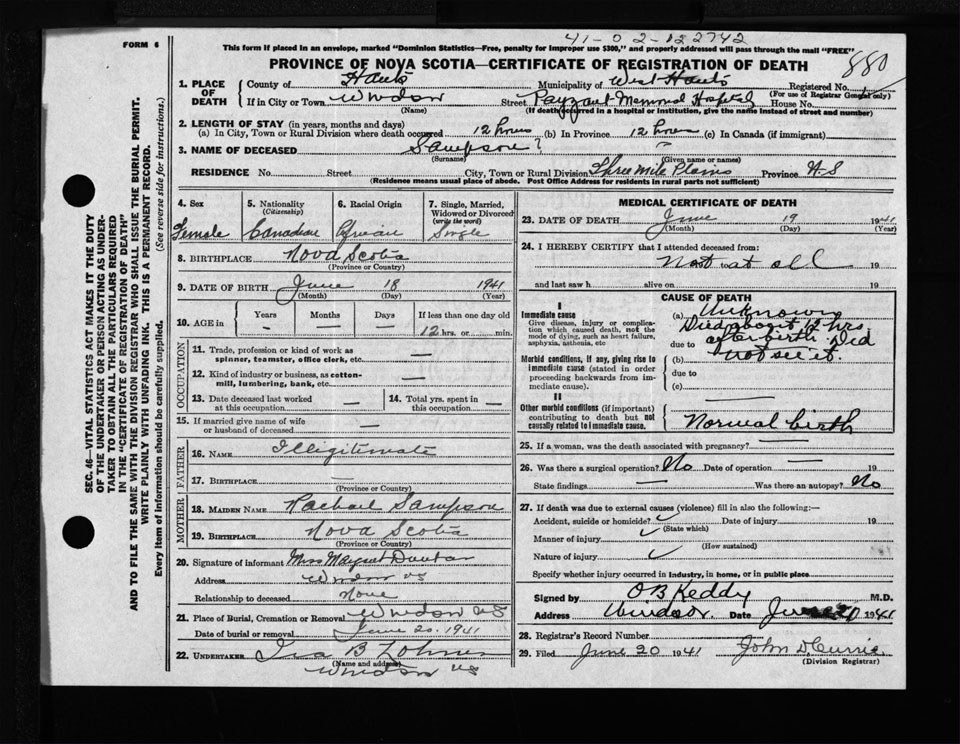 41-02-132742
FORM 6
This form if placed in an envelope, marked "Dominion Statistics—Free, penalty for improper use $300," and properly addressed will pass through the mail "FREE"
PROVINCE OF NOVA SCOTIA—CERTIFICATE OF REGISTRATION OF DEATH
880
1. PLACE OF DEATH County of Hants Municipality of West Hants Registered No.
(For use of Registrar General only)
If in City or Town Windsor Street Payzant Memorial Hospital House No.
(Name) (If death occurred in a hospital or institution, give the name instead of street and number)
2. LENGTH OF STAY (in years, months and days)
(a) In City, Town or Rural Division where death occurred 12 hours (b) In Province 12 hours (c) In Canada (if immigrant)
3. NAME OF DECEASED Sampson ?
(Surname) (Given name or names)
RESIDENCE No. Street City, Town or Rural Division Three Mile Plains Province N-S
(Residence means usual place of abode. Post Office Address for residents in rural parts not sufficient)
4. Sex Female
5. Nationality (Citizenship) Canadian
6. Racial Origin
7. Single, Married, Widowed or Divorced (write the word) Single
8. BIRTHPLACE Nova Scotia
(Province or Country)
9. DATE OF BIRTH June 18 1941
(Month) (Day) (Year)
10. AGE in Years Months Days If less than one day old
— — — 12 hrs. or min.
OCCUPATION
11. Trade, profession or kind of work as spinner, teamster, office clerk, etc. —
12. Kind of industry or business, as cotton-mill, lumbering, bank, etc. —
13. Date deceased last worked at this occupation — 14. Total yrs. spent in this occupation —
15. If married give name of wife or husband of deceased —
FATHER
16. NAME Illigitimate
17. BIRTHPLACE —
(Province or Country)
MOTHER
18. MAIDEN NAME Rachael Sampson
19. BIRTHPLACE Nova Scotia
(Province or Country)
20. Signature of informant Miss
Address Windsor NS
Relationship to deceased None
21. Place of Burial, Cremation or Removal Windsor NS
Date of burial or removal June 20, 1941
22. UNDERTAKER Ira B
(Name and address)
Windsor NS
MEDICAL CERTIFICATE OF DEATH
23. DATE OF DEATH June 19 1941
(Month) (Day) (Year)
24. I HEREBY CERTIFY that I attended deceased from:
Not to at all 19
and last saw h alive on 19
CAUSE OF DEATH
I
Immediate cause
Give disease, injury or complication which caused death, not the mode of dying, such as heart failure, asphyxia, asthenia, etc
(a) Unknown
Died about 12 hrs
Due to after birth. Did
Morbid conditions, if any, giving rise to immediate cause (stated in order proceeding backwards from immediate cause).
(b) not see it.
due to
(c)
II
Other morbid conditions (if important) contributing to death but not causally related to immediate cause.
Normal birth
25. If a woman, was the death associated with pregnancy? —
26. Was there a surgical operation? No Date of operation — 19
State findings — Was there an autopsy? No
27. If death was due to external causes (violence) fill in also the following:—
Accident, suicide or homicide? Date of injury 19
(State which)
Manner of injury
(How sustained)
Nature of injury
Specify whether injury occurred in industry, in home, or in public place
Signed by O B Keddy M.D.
Address Windsor. Date June 20 1941
28. Registrar's Record Number
29. Filed June 20 1941 John D. Currie
(Division Registrar)
SEC. 46—VITAL STATISTICS ACT MAKES IT THE DUTY
OF THE UNDERTAKER OR PERSON ACTING AS UNDER-
TAKER TO OBTAIN ALL THE PARTICULARS REQUIRED
IN THE "CERTIFICATE OF REGISTRATION OF DEATH"
AND TO FILE THE SAME WITH THE DIVISION REGISTRAR WHO SHALL ISSUE THE BURIAL PERMIT.
WRITE PLAINLY WITH UNFADING INK. THIS IS A PERMANENT RECORD.
Every item of information should be carefully supplied. (See reverse side for instructions.)